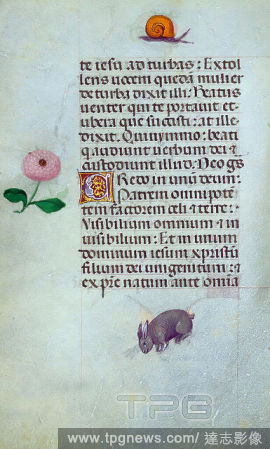 te iesu ad turbas: Extol
lens uocem quedã mulier
de turba dixit illi: Beatus
uenter qui te portauit et
ubera que suxisti: at ille
dixit. Quinymmo: beati
qui audiunt uerbum dei et
custodiunt illud. Deo gs
CRedo in unũ deum:
Patrem omnipotẽ
tem factorem celi et terre:
Visibilium omnium et in
uisibilium: Et in unum
dominum iesum xpistũ
filium dei unigenitum: et
ex pr̃e natum ante omia
TPG
www.tpgnews.com/ 達志影像